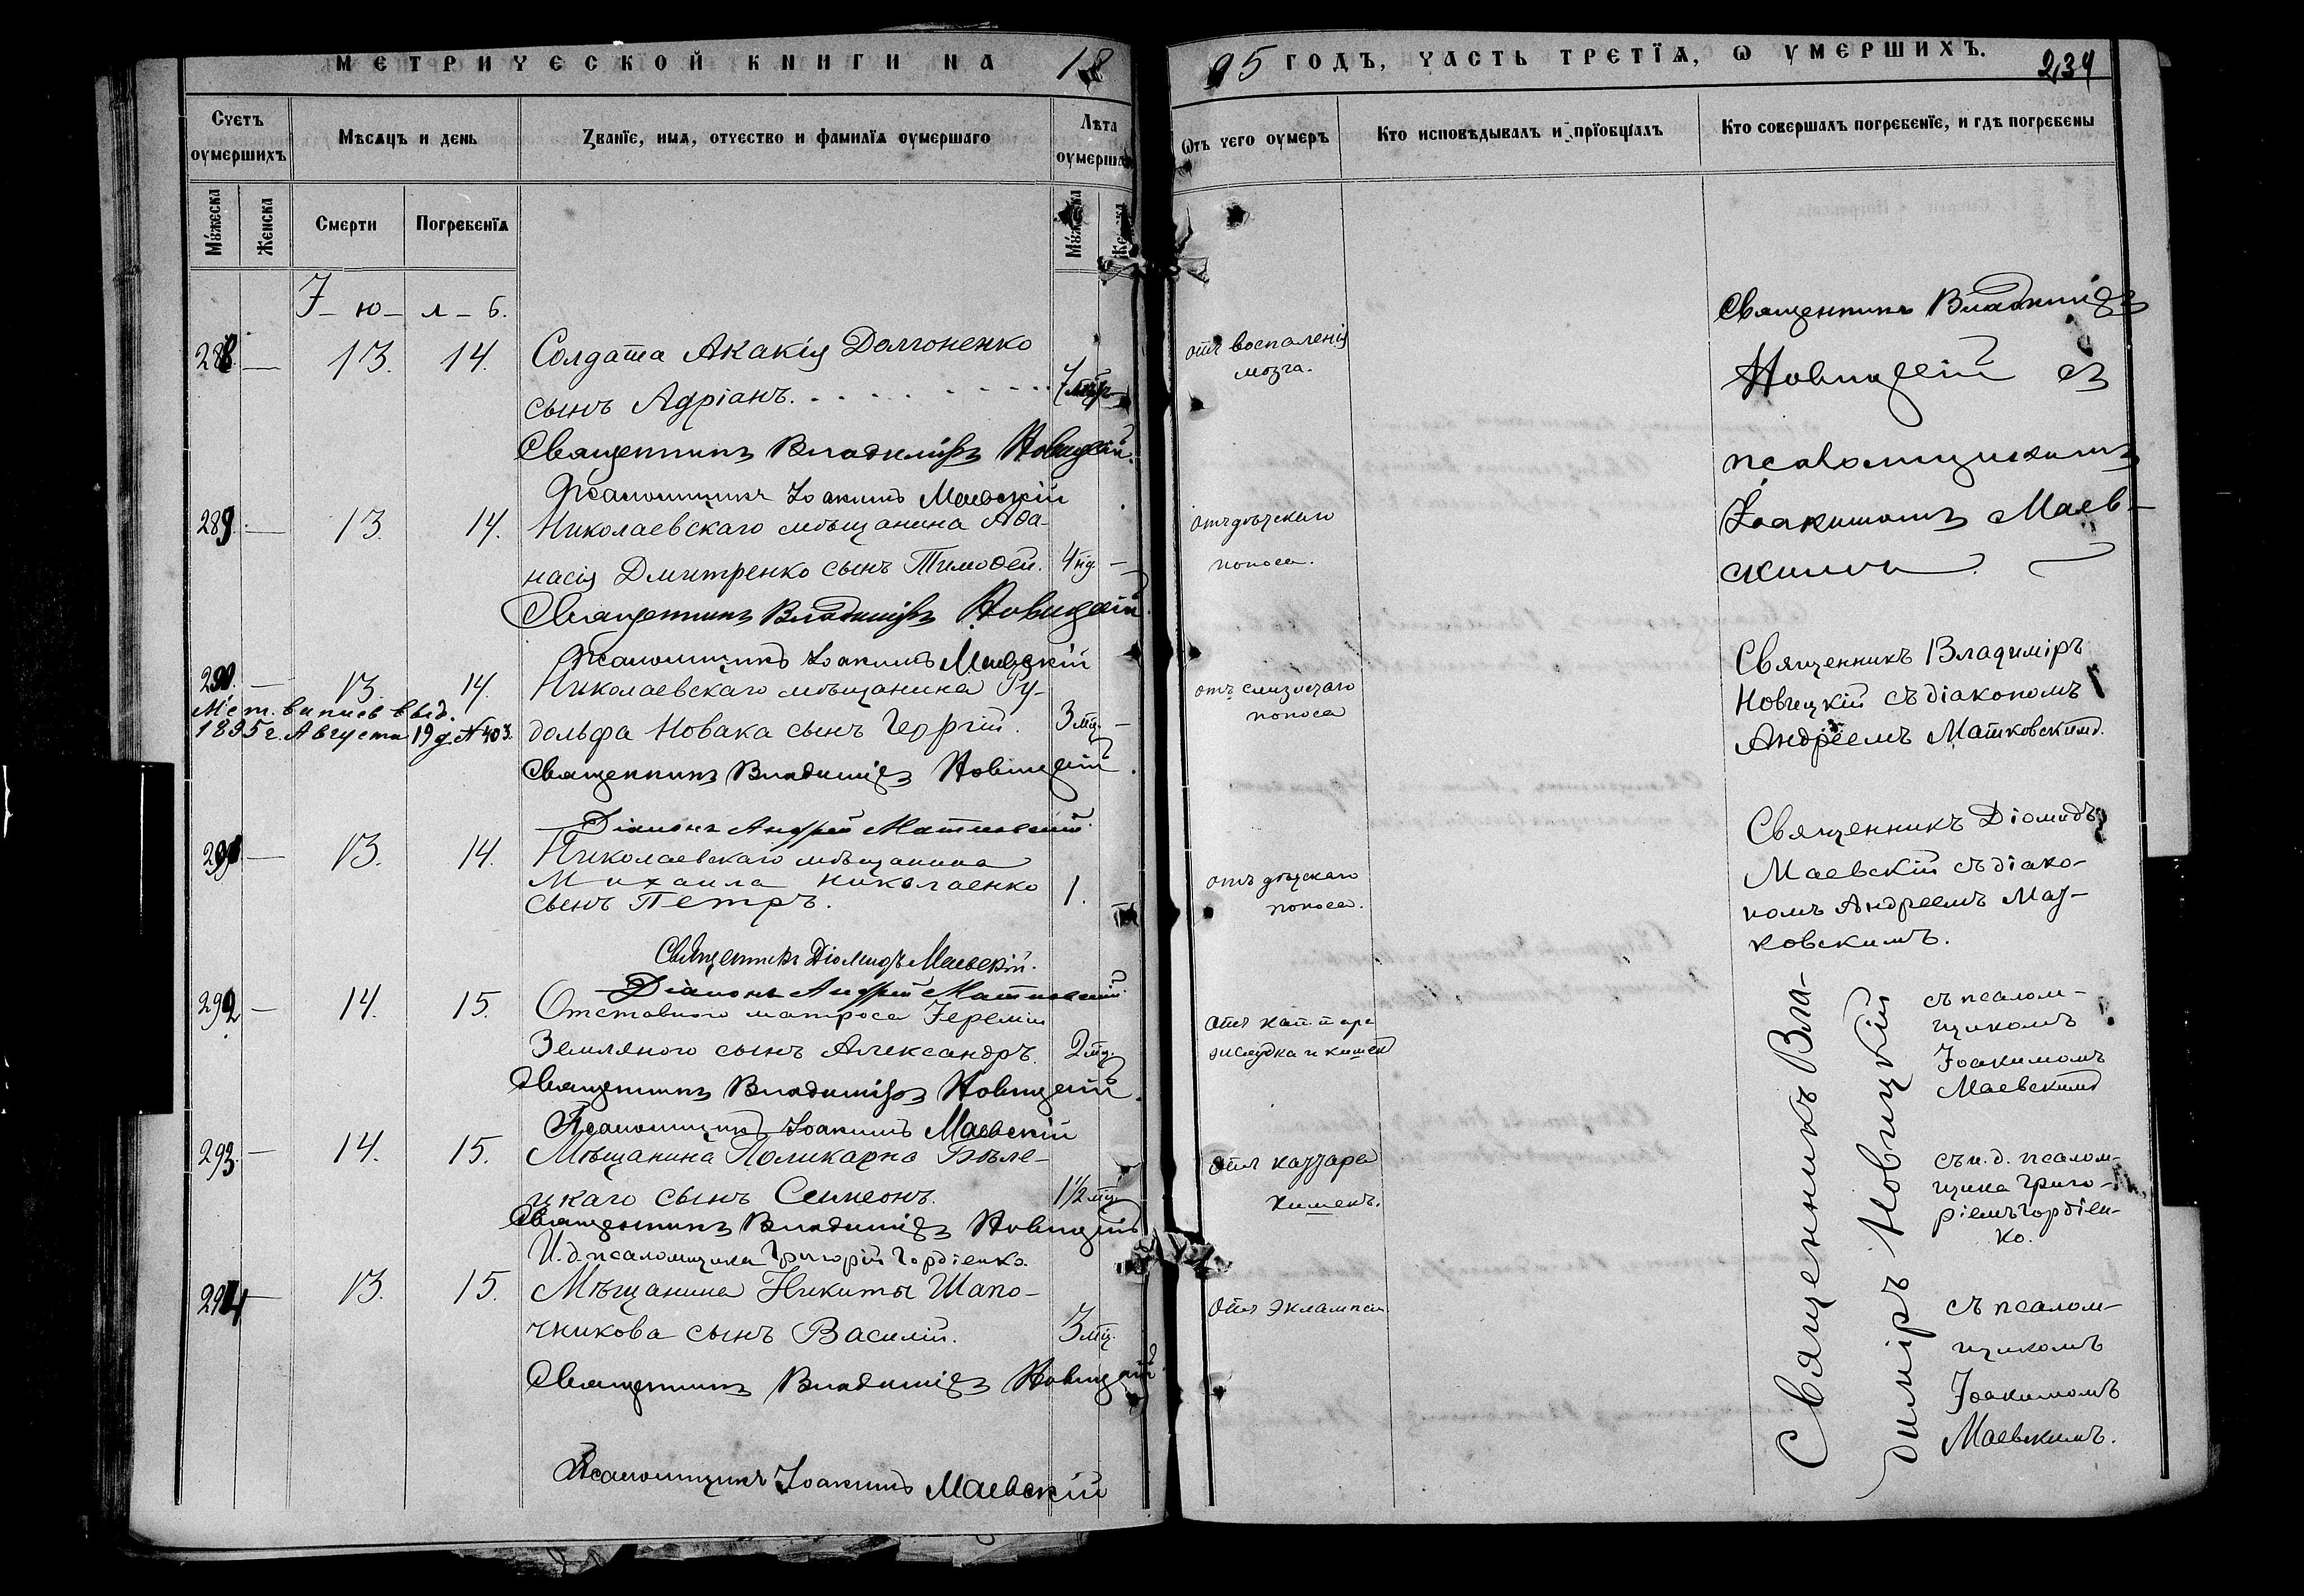 МЕТРИЧЕСКОЙ КНИГИ НА 18
95 ГОДЪ, ЧАСТЬ ТРЕТІѦ, Ѡ УМЕРШИХЪ. 234
Счетъ оумершихъ
Мѣсѧцъ и день
Званїе, имѧ, отчество и фамилїѧ оумершаго
Лѣта оумерша
Ѿъ чего оумеръ
Кто исповѣдывалъ и прїобщалъ
Кто совершалъ погребенїе, и гдѣ погребены
Мужеска
Женска
Смерти
Погребенїѧ
Мужеска
Женска
I - ю - л - б.
288. — 13. 14. Солдата Акакія Долгоненко
сынъ Адріанъ. 7
Священникъ Владиміръ Новицкій.
Псаломщикъ Іоакимъ Маевскій
отъ воспаленія
мозга.
Священникъ Владиміръ
Новицкій съ
псаломщикомъ
Іоакимомъ Маев-
скимъ.
289. — 13. 14. Николаевскаго мѣщанина Аѳа-
насія Дмитренко сынъ Тимоѳей. 4 нд. —
Священникъ Владиміръ Новицкій
Псаломщикъ Іоакимъ Маевскій
отъ дѣтскаго
поноса.
290. — 13. 14. Николаевскаго мѣщанина Ру-
дольфа Новака сынъ Георгій. 3 мц. —
Мет. выпись выд.
1895 г. Августа 19 д. № 403.
Священникъ Владиміръ Новицкій.
Діаконъ Андрей Матковскій.
отъ слизистаго
поноса
Священникъ Владиміръ
Новицкій съ діакономъ
Андреемъ Матковскимъ.
291 — 13. 14. Николаевскаго мѣщанина
Михаила Николаенко
сынъ Петръ. 1.
Священникъ Діомидъ Маевскій.
Діаконъ Андрей Матковскій.
отъ дѣтскаго
поноса.
Священникъ Діомидъ
Маевскій съ діако-
номъ Андреемъ Мат-
ковскимъ.
292 — 14. 15. Отставного матроса Іереміи
Земляного сынъ Александръ. 2 мц.
Священникъ Владиміръ Новицкій.
Псаломщикъ Іоакимъ Маевскій
отъ
желудка и кишекъ
Священникъ Вла-
диміръ Новицкій
съ псалом-
щикомъ
Іоакимомъ
Маевскимъ
293. — 14. 15. Мѣщанина Поликарпа Бѣле-
цкаго сынъ Симеонъ. 1½ мц.
Священникъ Владиміръ Новицкій
И. д. псаломщика Григорій Гордіенко.
отъ катара
кишекъ.
съ и. д. псалом-
щика Григо-
ріемъ Гордіен-
ко.
294 — 13. 15. Мѣщанина Никиты Шапо-
чникова сынъ Василій. 3 мц.
Священникъ Владиміръ Новицкій.
Псаломщикъ Іоакимъ Маевскій
отъ эклампсіи
съ псалом-
щикомъ
Іоакимомъ
Маевскимъ.